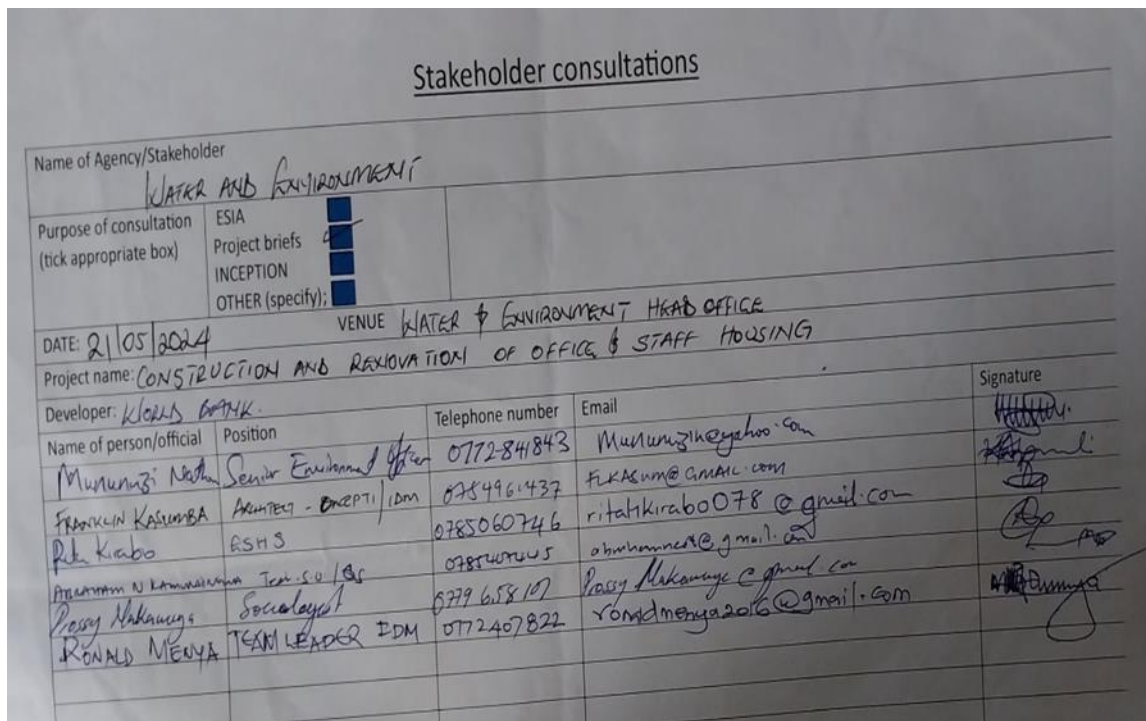 Stakeholder consultations
Name of Agency/Stakeholder
WATER AND ENVIRONMENT
Purpose of consultation
(tick appropriate box)
ESIA
Project briefs
INCEPTION
OTHER (specify);
DATE: 21/05/2024 VENUE WATER & ENVIRONMENT HEAD OFFICE
Project name: CONSTRUCTION AND RENOVATION OF OFFICE & STAFF HOUSING
Developer: WORLD BANK.
Name of person/official Position Telephone number Email Signature
Mununuzi Nathan Senior Environment Officer 0772-841843 Mununuzin@yahoo.com
FRANKLIN KASUMBA ARCHITECT - /IDM 0784961437 FLKASUM@GMAIL.COM
Rita Kirabo ESHS 0785060746 ritahkirabo078@gmail.com
ABRAHAM N @gmail.com
Prossy Sociologist 0779658107
RONALD MENYA TEAM LEADER IDM 0772407822 ronaldmenya2016@gmail.com